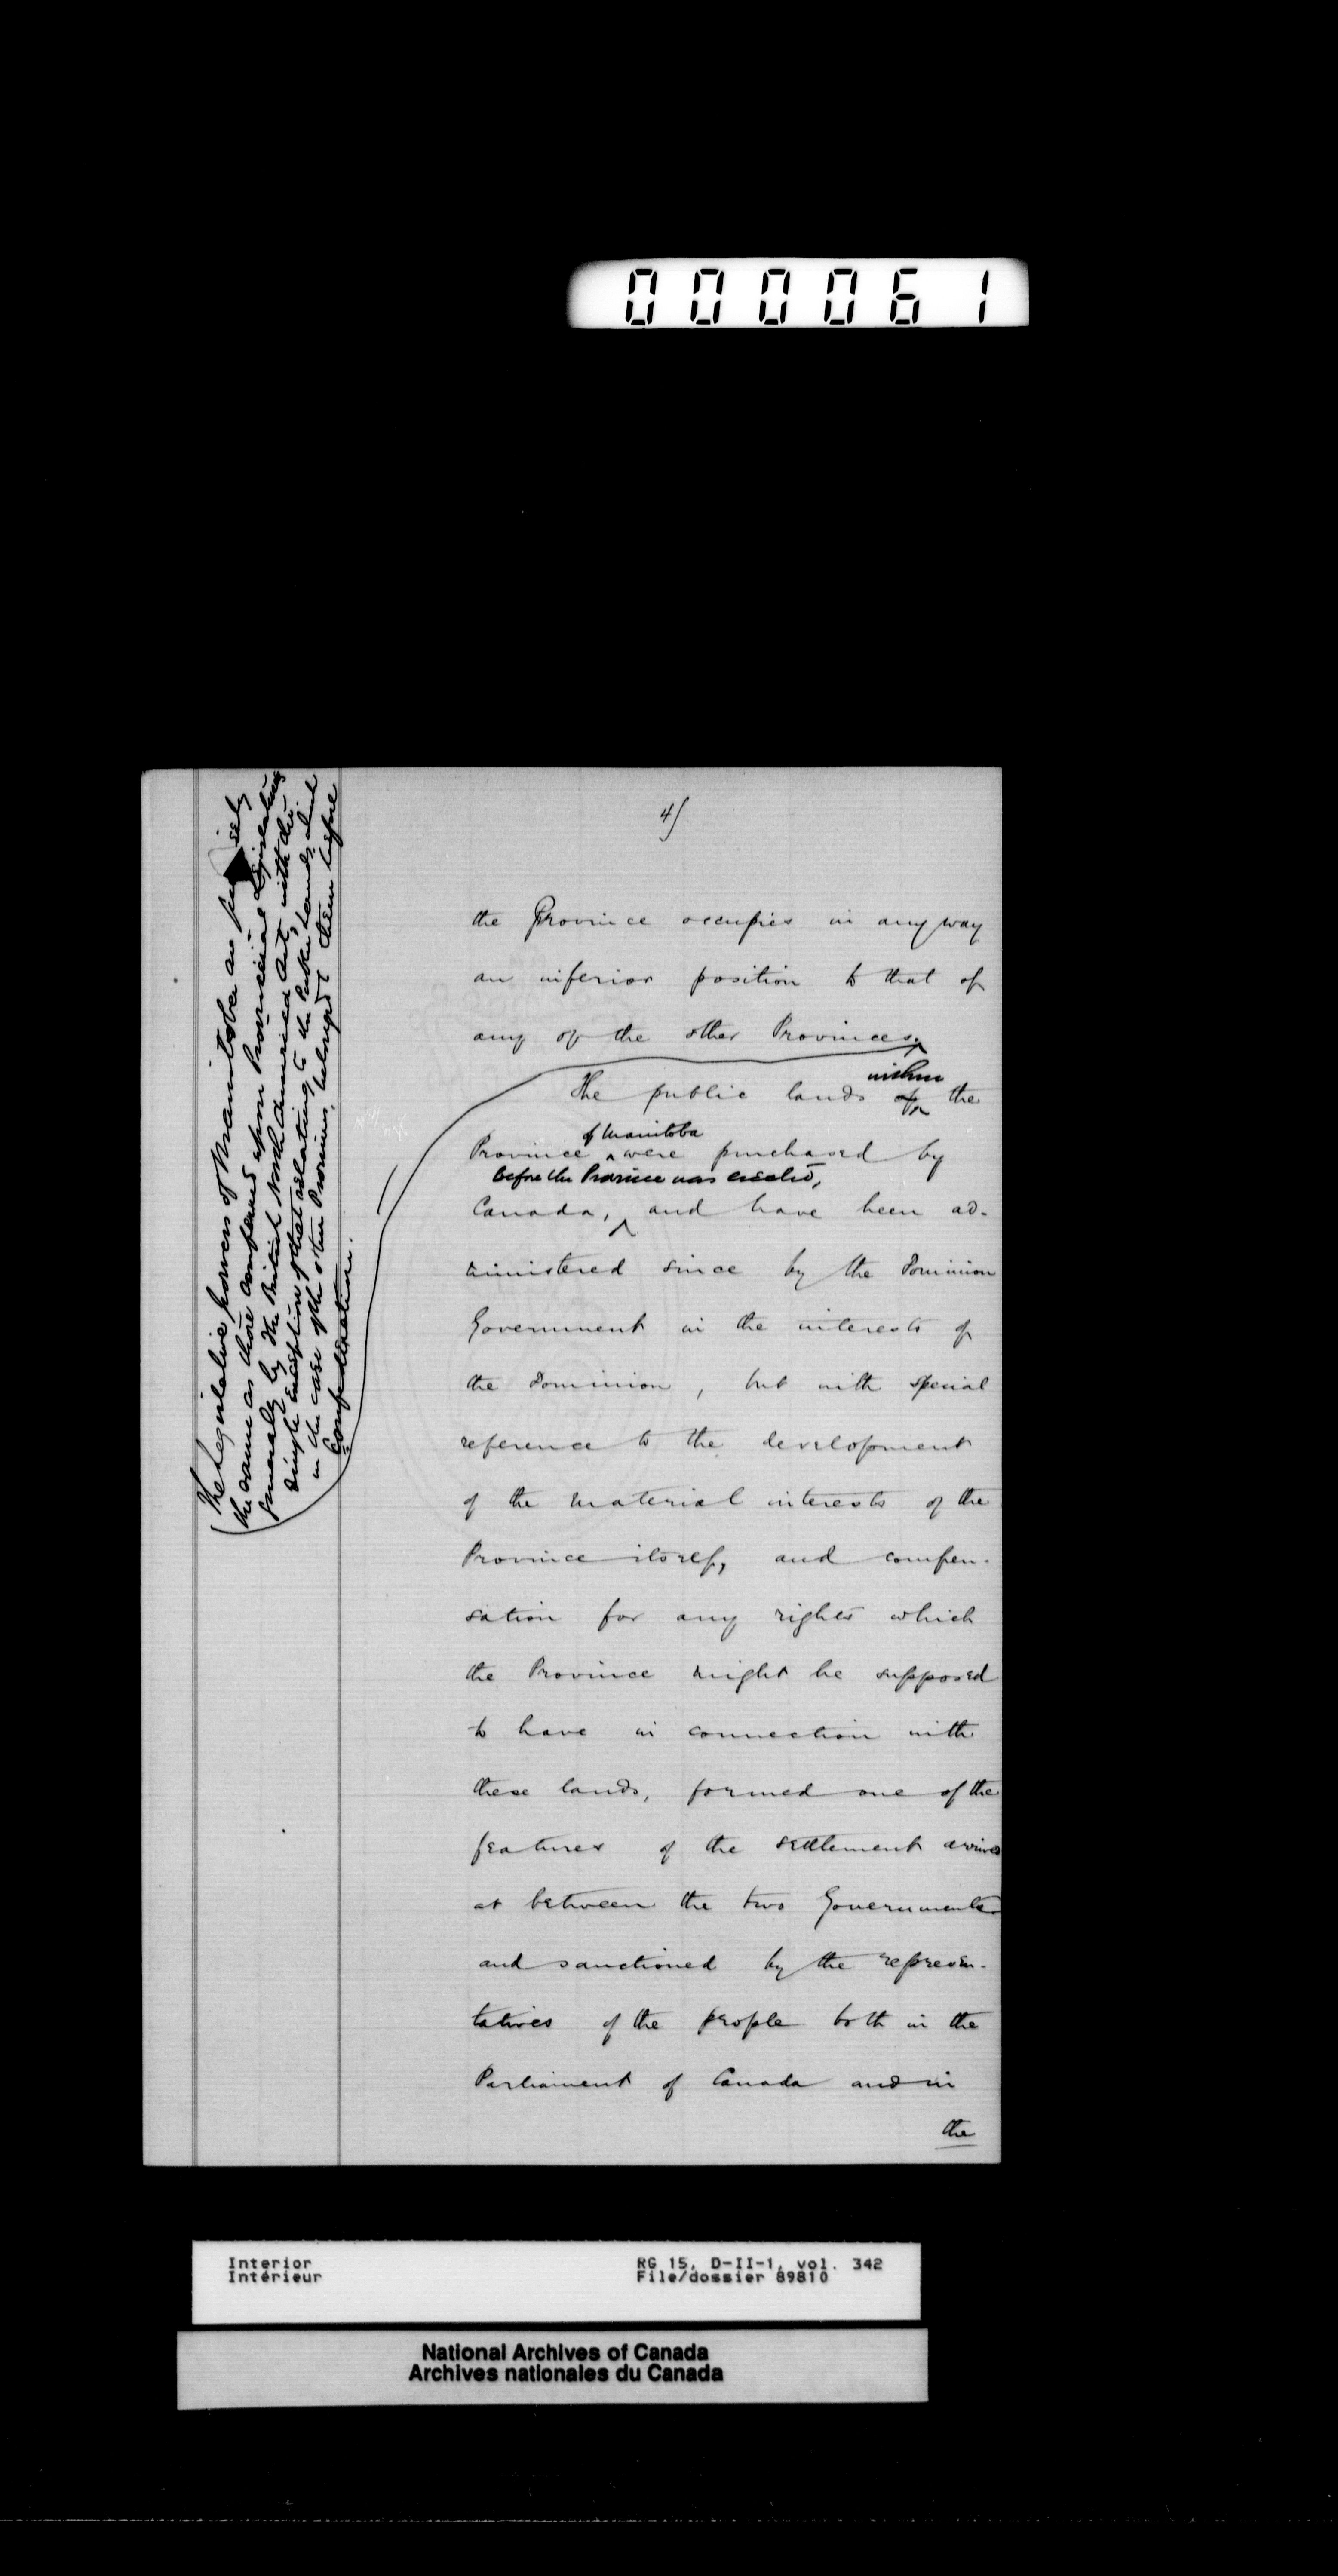 000061
4)
the Province occupies in any way
an inferior position to that of
any of the other Provinces.
within
The public lands of the
of Manitoba
Province were purchased by
before the Province was created,
Canada, and have been ad-
ministered since by the Dominion
Government in the interests of
the Dominion, but with special
reference to the development
of the material interests of the
Province itself, and compen-
sation for any rights which
the Province might be supposed
to have in connection with
these lands, formed one of the
features of the settlement arrived
at between the two Governments
and sanctioned by the represen-
tatives of the people both in the
Parliament of Canada and in
the
The legislative powers of Manitoba are precisely
the same as those conferred upon Provincial Legislatures
generally by the British North America Act, with the
single exception of that relating to the Public Lands, which
in the case of the other Provinces, belonged to them before
Confederation.
Interior
Intérieur
RG 15, D-II-1, vol. 342
File/dossier 89810
National Archives of Canada
Archives nationales du Canada